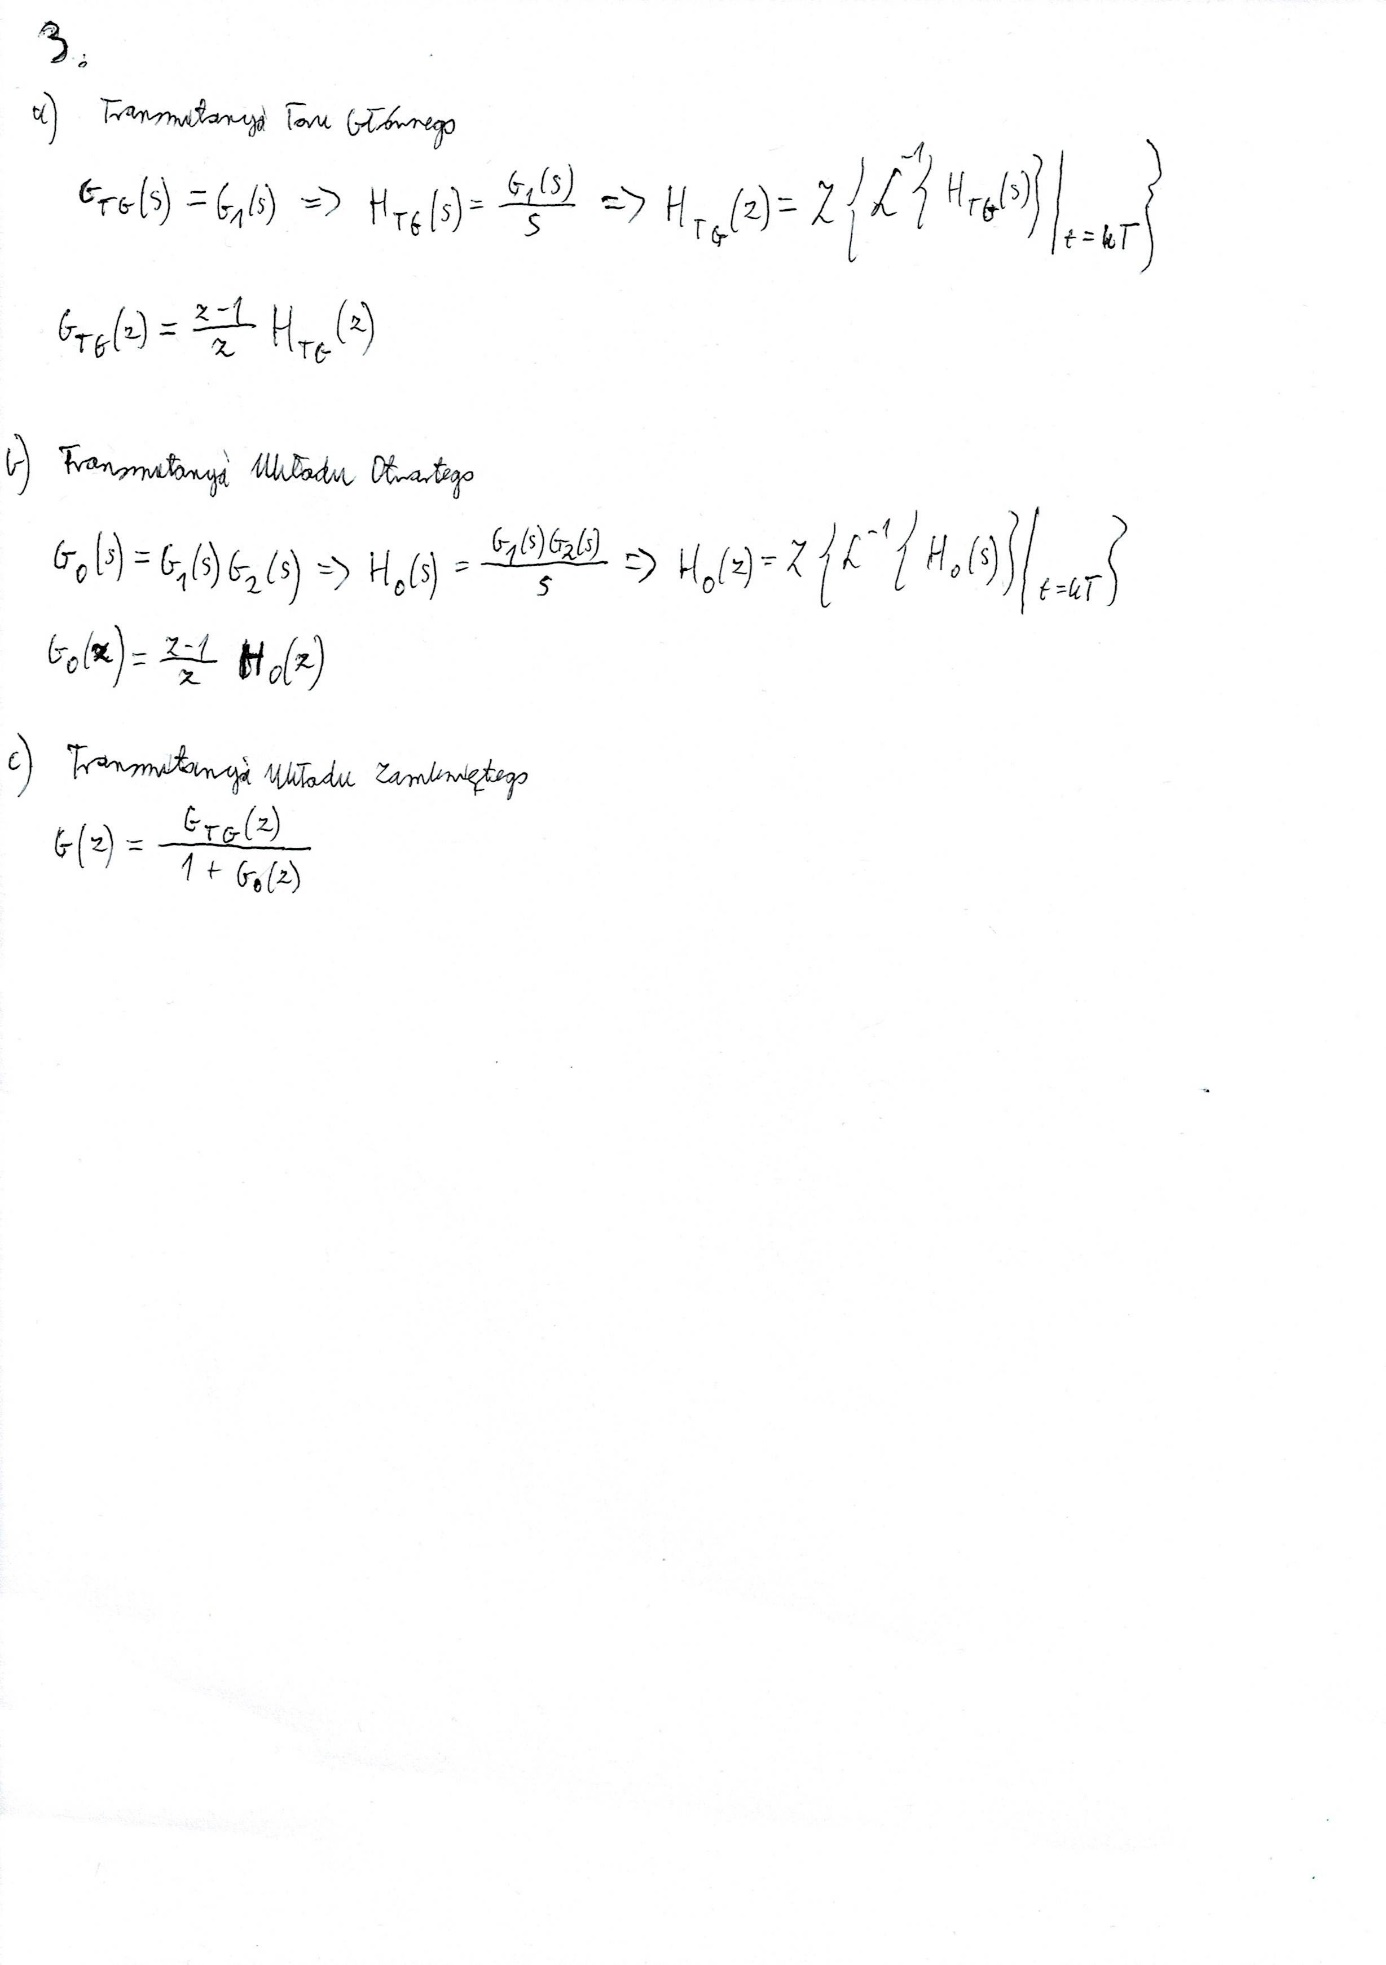 3.
a) Transmitancja Toru Głównego
G_TG(s) = G_1(s) => H_TG(s) = G_1(s)/s => H_TG(z) = Z{L^-1{H_TG(s)}|_t=kT}
G_TG(z) = z-1/z H_TG(z)
b) Transmitancja Układu Otwartego
G_0(s) = G_1(s) G_2(s) => H_0(s) = G_1(s)G_2(s)/s => H_0(z) = Z{L^-1{H_0(s)}|_t=kT}
G_0(z) = z-1/z H_0(z)
c) Transmitancja Układu Zamkniętego
G(z) = G_TG(z)/1 + G_0(z)